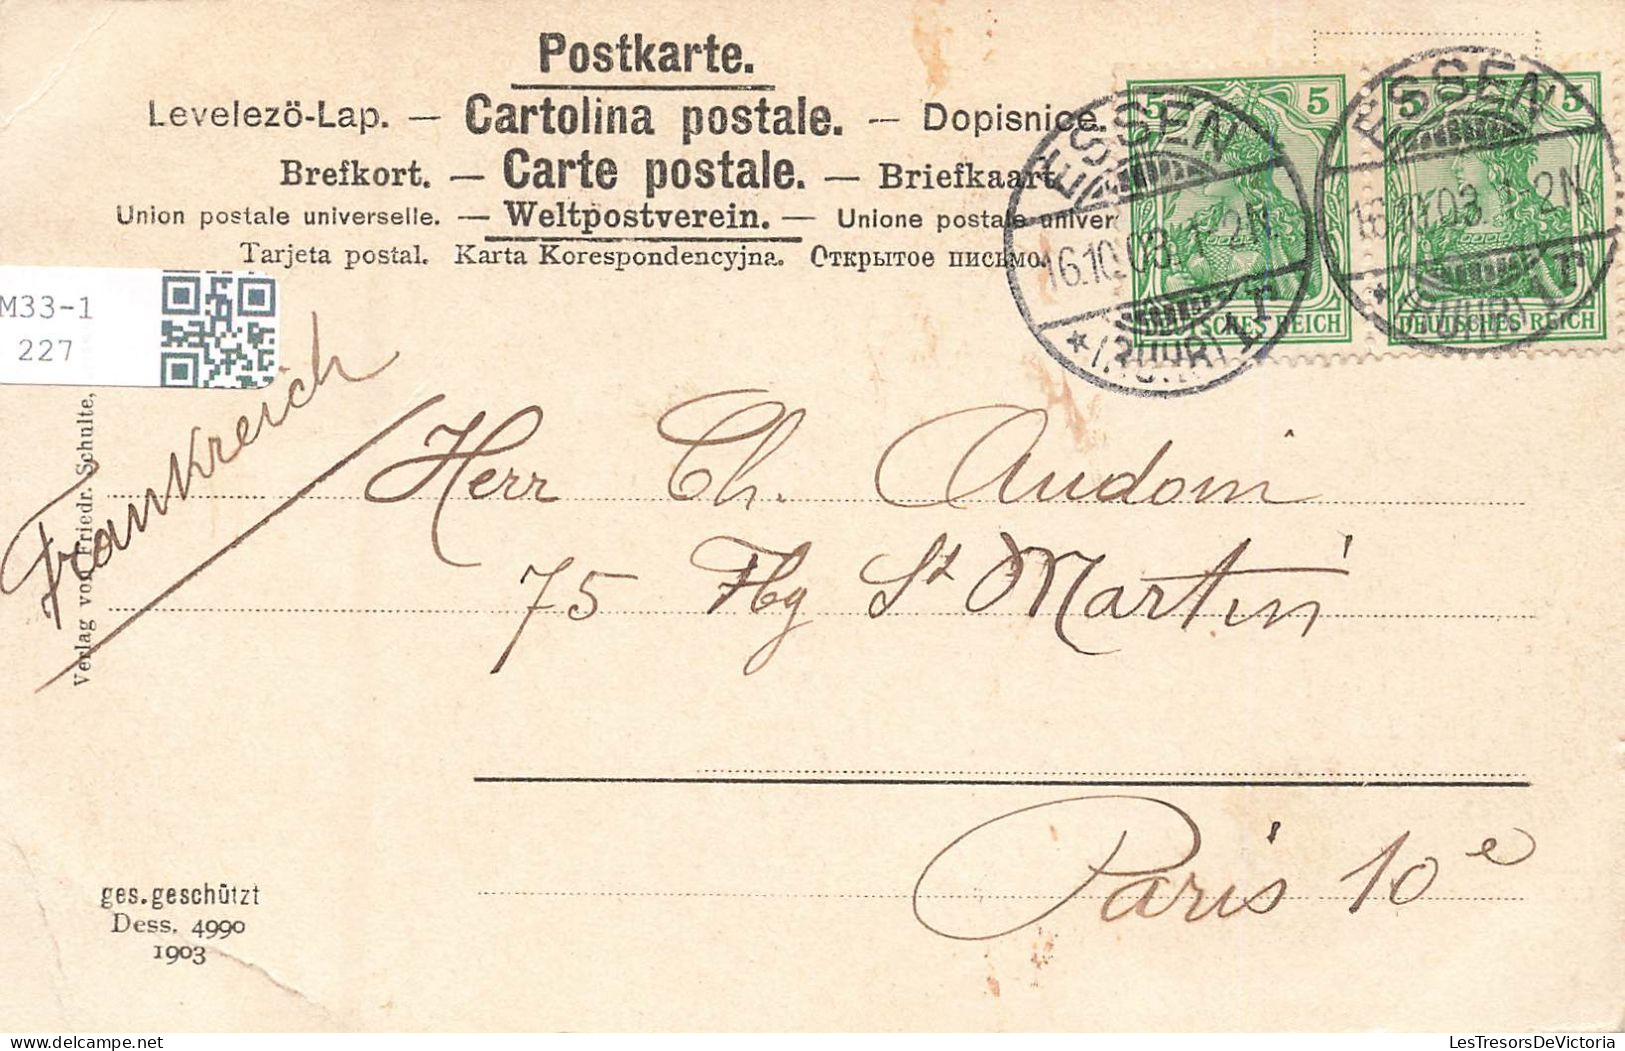 Postkarte.
Levelezö-Lap. — Cartolina postale. — Dopisnice.
Brefkort. — Carte postale. — Briefkaart
Union postale universelle. — Weltpostverein. — Unione postale univer
Tarjeta postal. Karta Korespondencyjna. Открытое письмо.
5 5
ESSEN
16.10.03. 1-2N
* (RUHR) 1r
DEUTSCHES REICH
5 5
ESSEN
16.10.03. 1-2N
* (RUHR) 1r
DEUTSCHES REICH
M33-1
227
Frankreich
Verlag von Friedr. Schulte,
Herr Ch. Audoin
75 Fbg St Martin
Paris 10e
ges. geschützt
Dess. 4990
1903
LesTresorsDeVictoria